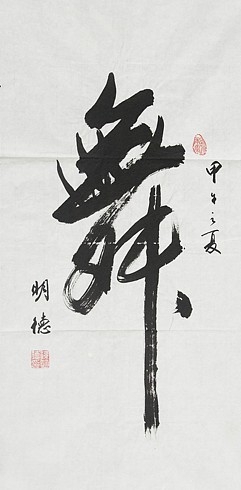 甲午之夏
舞
明德